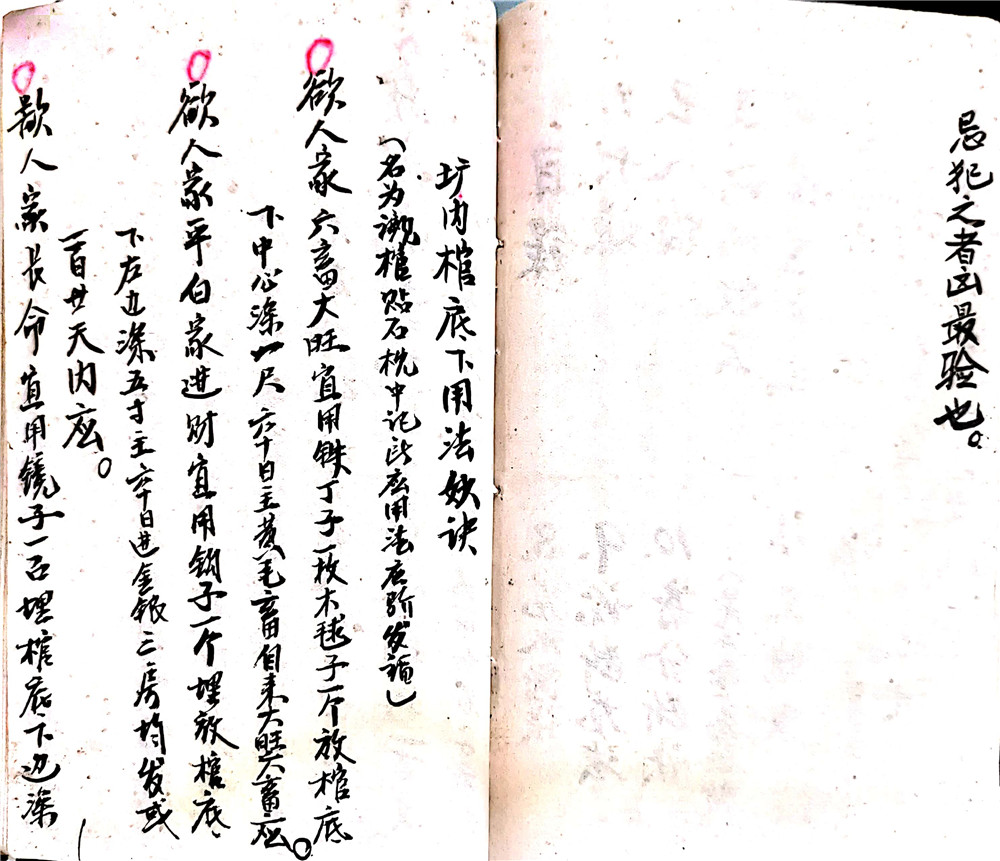 忌犯之者凶最验也。
圹内棺底下用法妙诀
(名为 棺贴石枕中记此应用法应验发福)
欲人家六畜大旺宜用铁丁子一枚木毬子一个放棺底
下中心深一尺六十日主黄毛畜自来大旺六畜应。
欲人家平白家进财宜用锅子一个埋放棺底
下左边深五寸主六十日进金银三房均发或
一百廿天内应。
欲人家长命宜用镜子一百埋棺底下边深